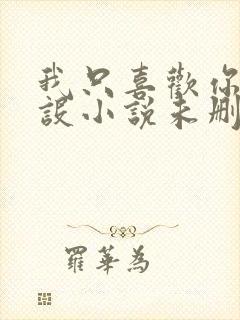 我只喜歡你
設小說未刪
羅華為